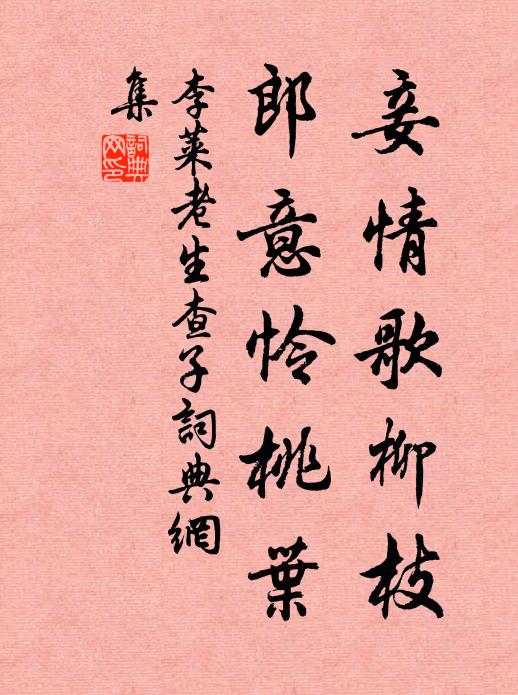 妾情歌柳枝
郎意怜桃葉
李萊老生查子詞典網
集
詞典
网印